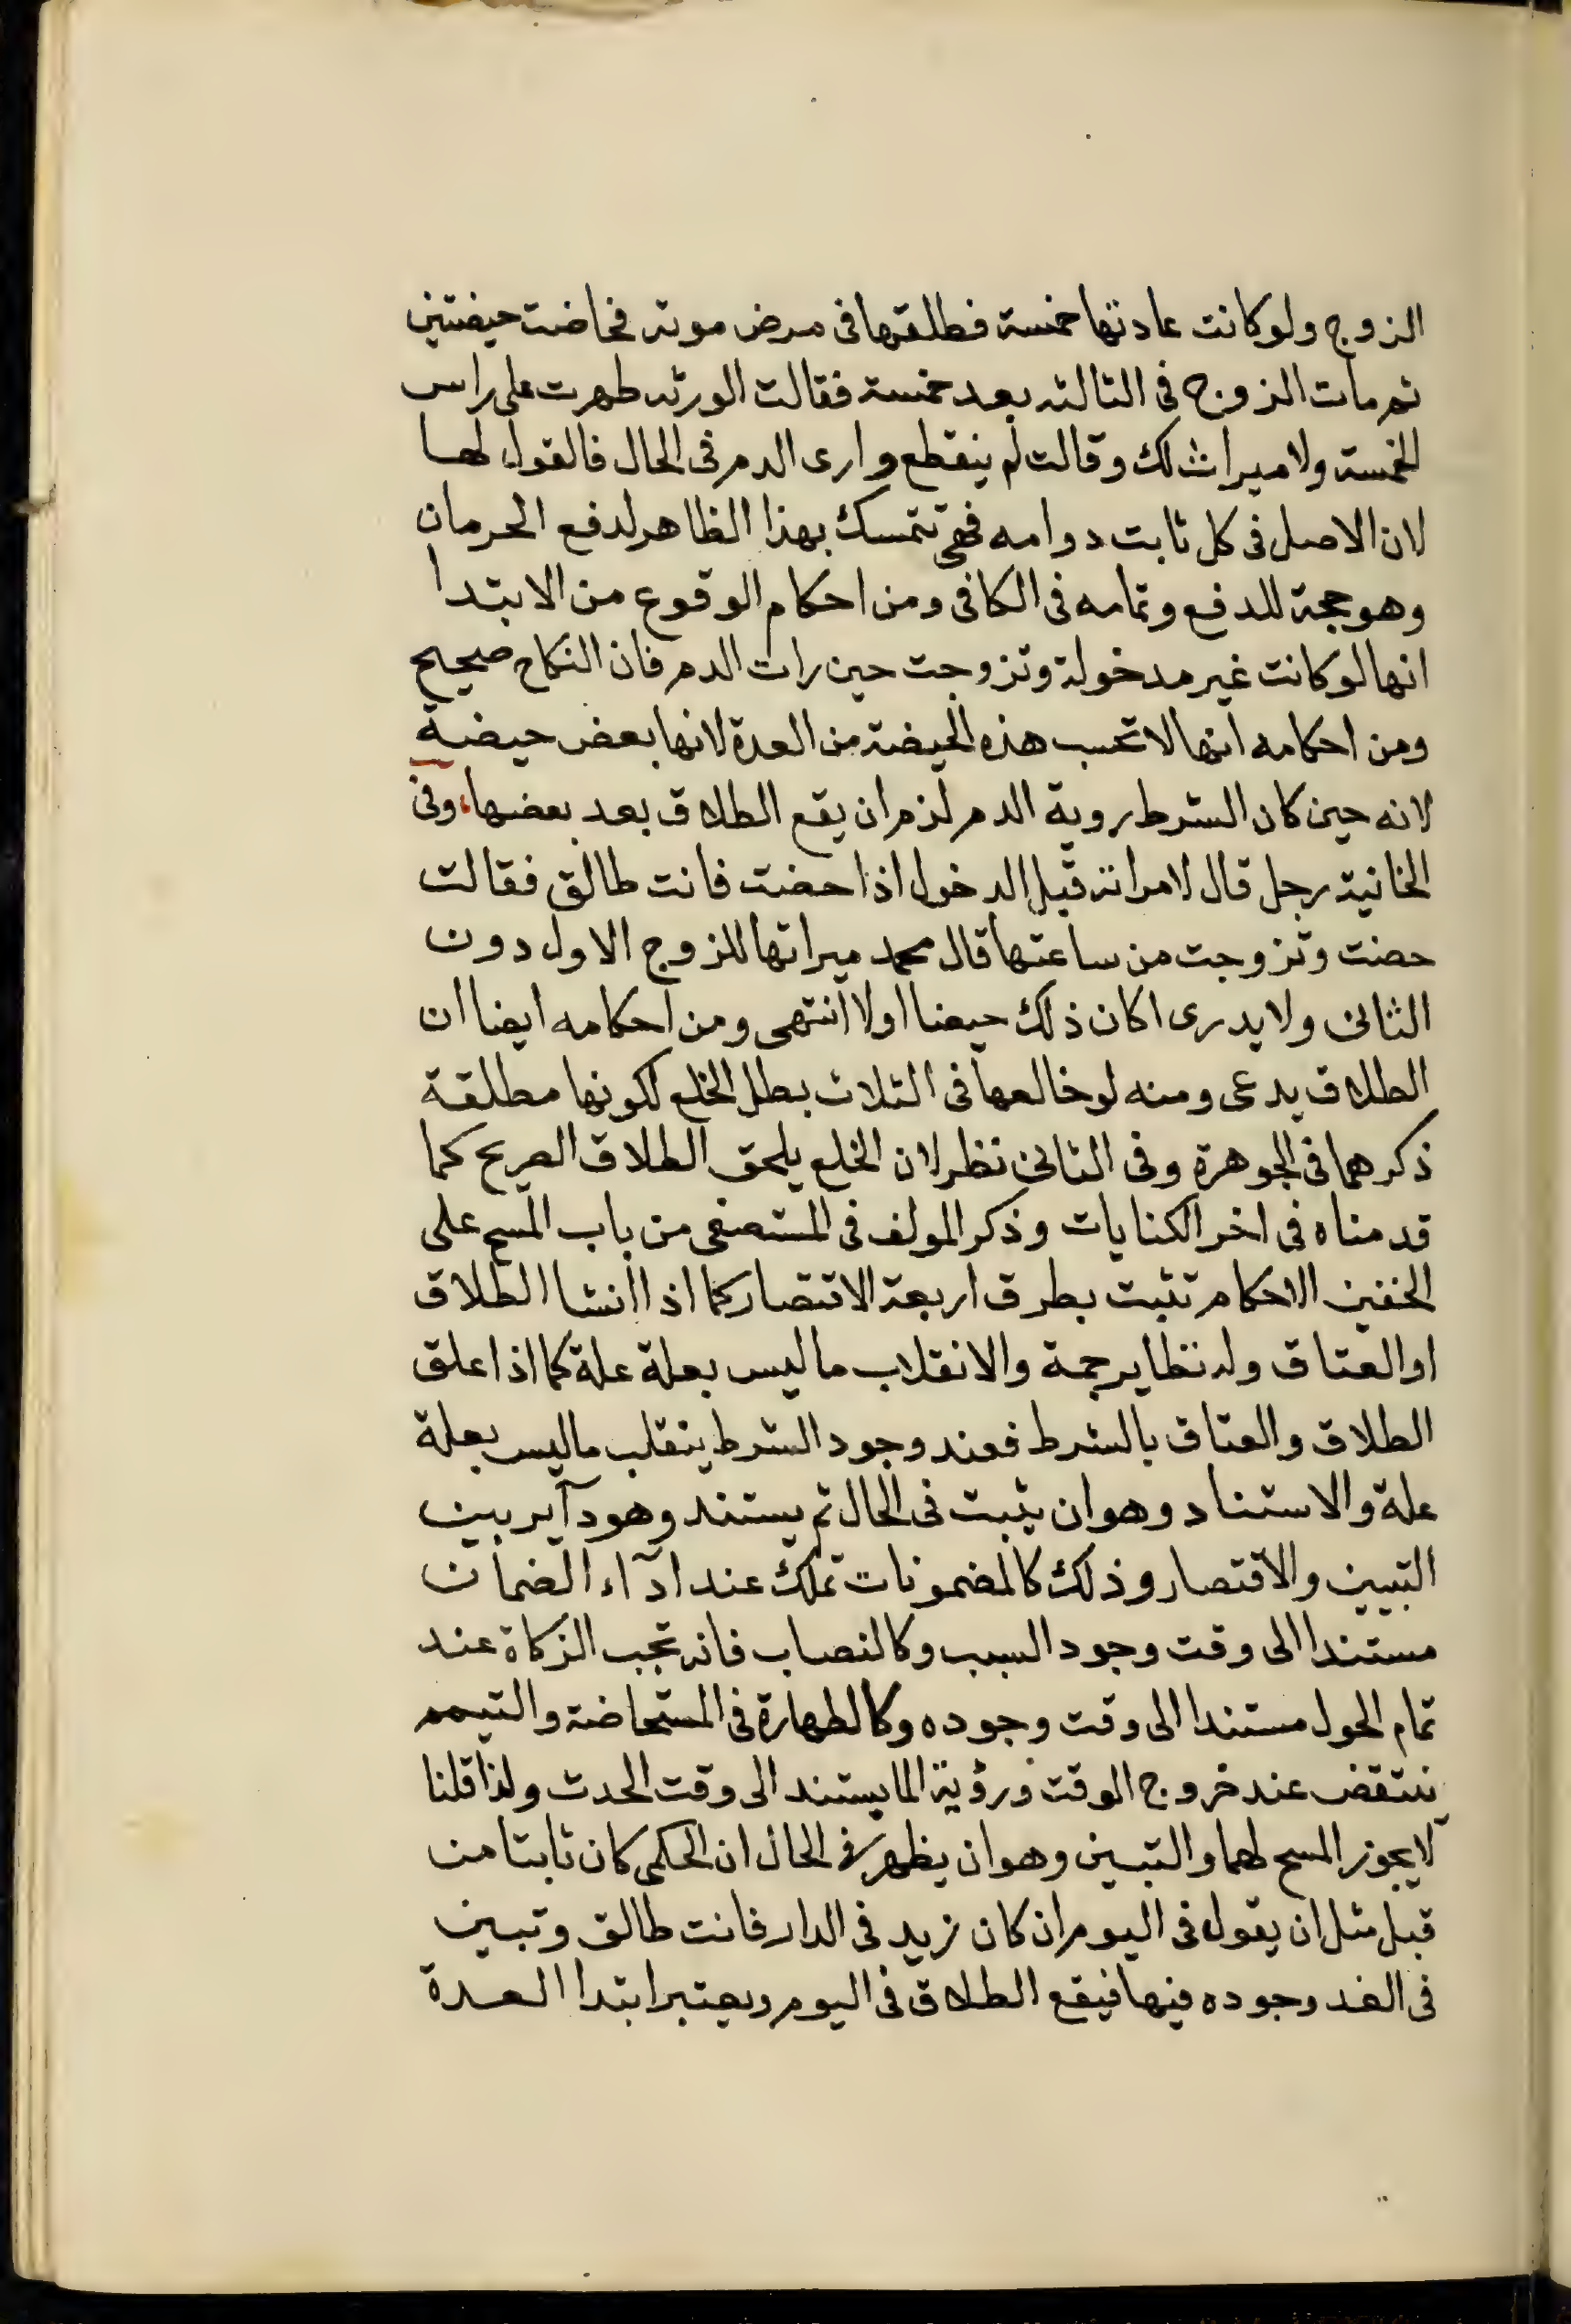 الزوج ولو كانت عادتها خمسة فطلقها فى مرض موته فحاضت حيضتين
ثم مات الزوج فى الثالثه بعد خمسة فقالت الورثه طهرت على راس
الخمسة ولا ميراث لك وقالت لم ينقطع وارى الدم فى الحال فالقول لها
لان الاصل فى كل ثابت دوامه فهى تتمسك بهذا الظاهر لدفع الحرمان
وهو حجة للدفع وتمامه فى الكافى ومن احكام الوقوع من الابتدا
انها لو كانت غير مدخولة وتزوجت حين رات الدم فان النكاح صحيح
ومن احكامه انها لا تحسب هذه الحيضة من العدة لانها بعض حيضة
لانه حين كان الشرط روية الدم لزم ان يقع الطلاق بعد بعضها، وفى
الخانية رجل قال لامراته قبل الدخول اذا حضت فانت طالق فقالت
حضت وتزوجت من ساعتها قال محمد ميراثها للزوج الاول دون
الثانى ولا يدرى اكان ذلك حيضا اولا انتهى ومن احكامه ايضا ان
الطلاق بدعى ومنه لو خالعها فى الثلاث بطل الخلع لكونها مطلقة
ذكرهما فى الجوهرة وفى الثانى نظر لان الخلع يلحق الطلاق الصريح كما
قدمناه فى اخر الكنايات وذكر المولف فى المستصفى من باب المسح على
الخفين الاحكام تثبت بطرق اربعة الاقتصار كما اذا انشا الطلاق
او العتاق وله نظاير جمة والانقلاب ما ليس بعلة علة كما اذا علق
الطلاق والعتاق بالشرط فعند وجود الشرط ينقلب ما ليس بعلة
علة والاستناد وهو ان يثبت فى الحال ثم يستند وهو داير بين
التبيين والاقتصار وذلك كالمضمونات تملك عند ادآء الضمان
مستندا الى وقت وجود السبب وكالنصاب فانه تجب الزكاة عند
تمام الحول مستندا الى وقت وجوده وكالطهارة فى المستحاضة والتيمم
تنتقض عند خروج الوقت ورؤية الما يستند الى وقت الحدث ولذا قلنا
لا يجوز المسح لهما والتبيين وهو ان يظهر فى الحال ان الحكم كان ثابتا من
قبل مثل ان يقول فى اليوم ان كان زيد فى الدار فانت طالق وتبين
فى الغد وجوده فيها فيقع الطلاق فى اليوم ويعتبر ابتدا العدة